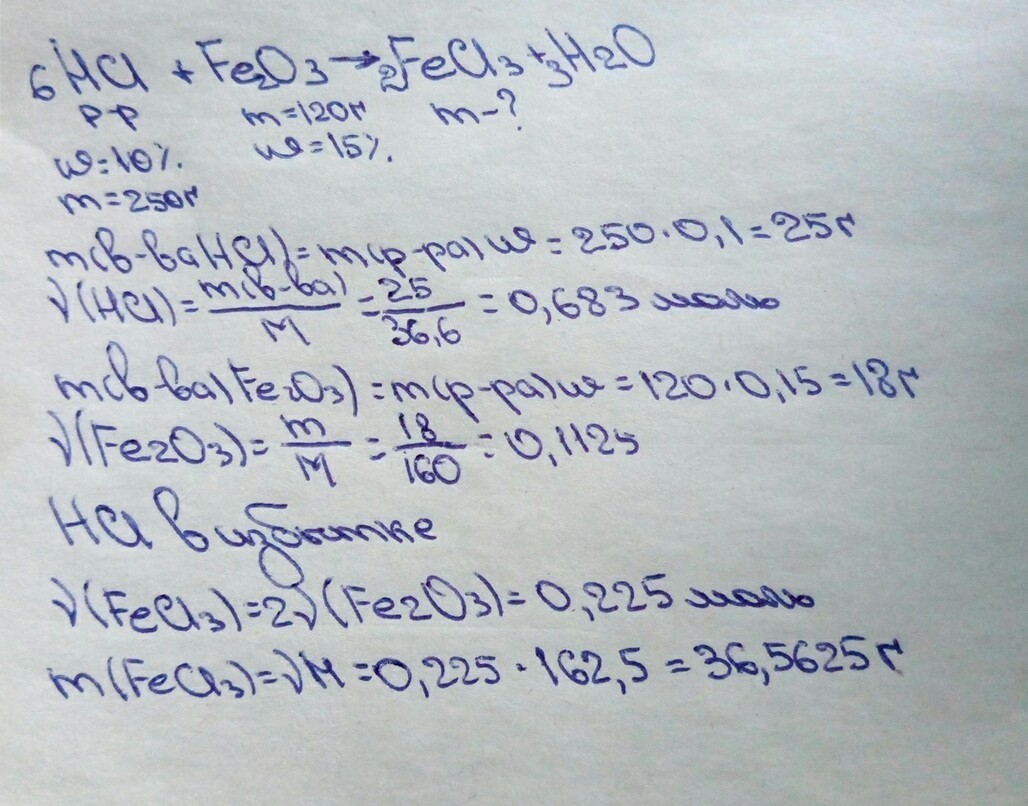 6HCl + Fe2O3 → 2FeCl3 + 3H2O
р-р m=120г m-?
w=10%. w=15%.
m=250г
m(в-ва HCl)=m(р-ра)w=250·0,1=25г
ν(HCl)=m(в-ва)/M=25/36,6=0,683 моль
m(в-ва)Fe2O3)=m(р-ра)w=120·0,15=18г
ν(Fe2O3)=m/M=18/160=0,1125
HCl в избытке
ν(FeCl3)=2ν(Fe2O3)=0,225 моль
m(FeCl3)=νM=0,225·162,5=36,5625г